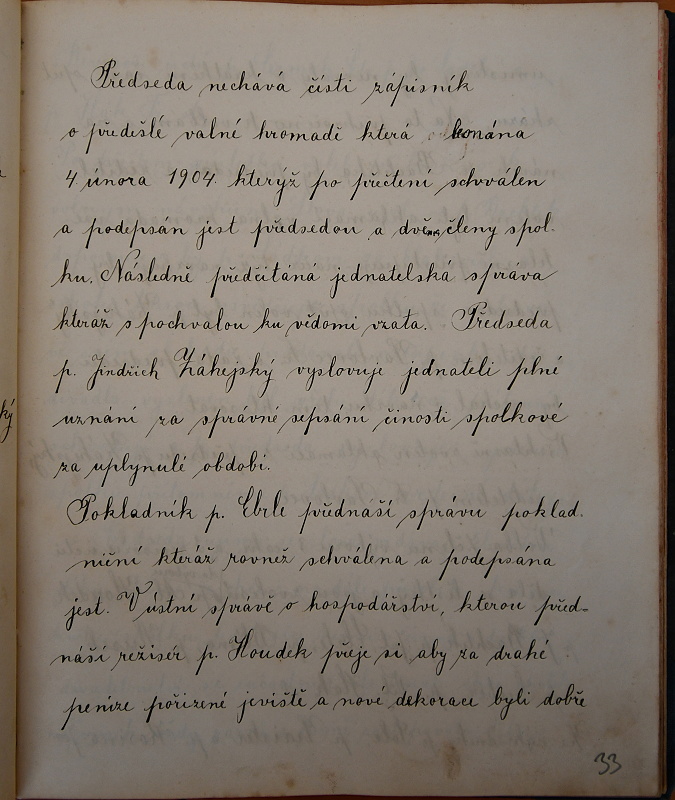 Předseda nechává čísti zápisník
o předešlé valné hromadě která konána
4. února 1904. kterýž po přečtení schválen
a podepsán jest předsedou a dvěma členy spol-
ku. Následně předčítáná jednatelská správa
kteráž s pochvalou ku vědomi vzata. Předseda
p. Jindřich Záhejský vyslovuje jednateli plné
uznání za správné sepsání činosti spolkové
za uplynulé obdobi.
Pokladník p. Ebrle přednáší správu poklad.
niční kteráž rovnež schválena a podepsána
jest. V ústní správě o hospodářství, kterou před-
náší režisér p. Houdek přeje si aby za drahé
peníze pořizené jeviště a nové dekorace byli dobře
33
ký